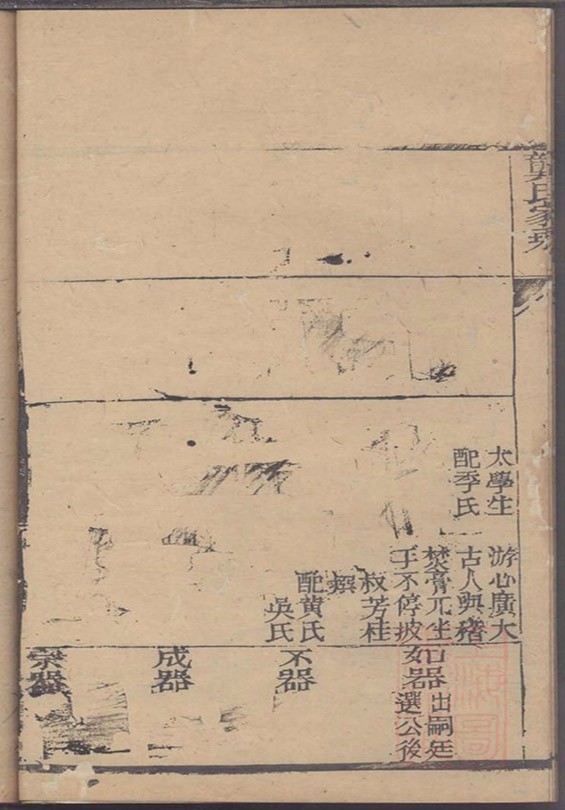 龔氏家乘
太學生
配季氏
游心廣大
古人與稽
焚膏兀坐
手不停披
叔芳桂
撰
配黃氏
吳氏
如器
出嗣廷
選公後
不器
成器
宗器